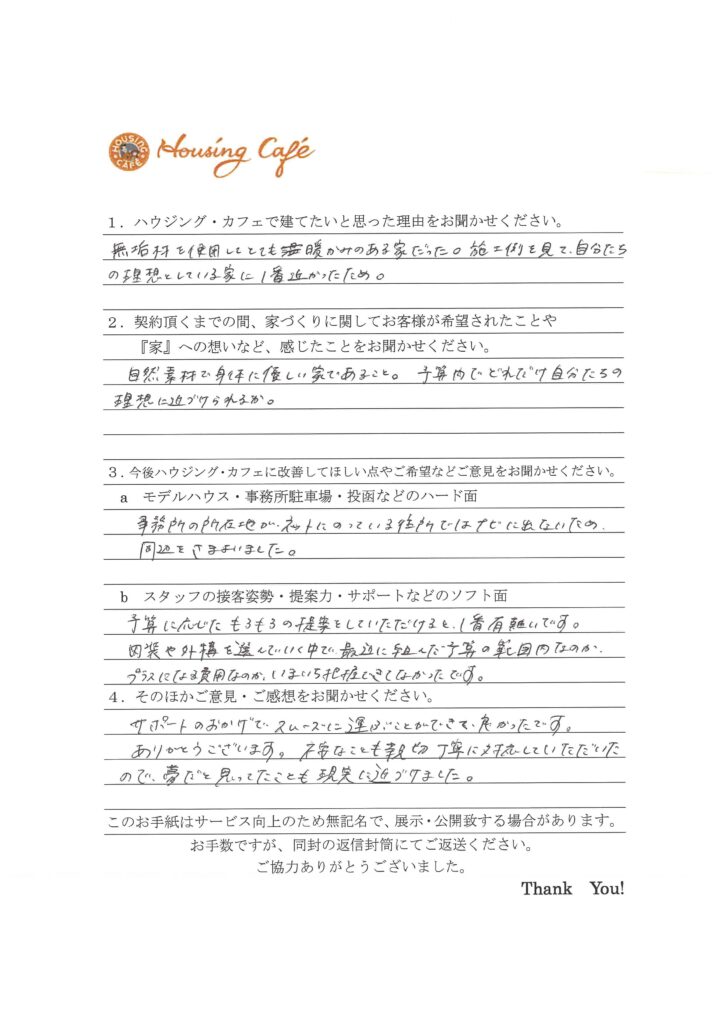 HOUSING CAFÉ Housing Café
1．ハウジング・カフェで建てたいと思った理由をお聞かせください。
無垢材を使用しとても暖かみのある家だった。施工例を見て、自分たち
の理想としている家に1番近かったため。
2．契約頂くまでの間、家づくりに関してお客様が希望されたことや
『家』への想いなど、感じたことをお聞かせください。
自然素材で身体に優しい家であること。予算内でどれだけ自分たちの
理想に近づけられるか。
3．今後ハウジング・カフェに改善してほしい点やご希望などご意見をお聞かせください。
a　モデルハウス・事務所駐車場・投函などのハード面
事務所の所在地が、ネットにのっている住所ではナビに出ないため、
周辺をさまよいました。
b　スタッフの接客姿勢・提案力・サポートなどのソフト面
予算に応じたもろもろの提案をしていただけると、1番有難いです。
内装や外構を選んでいく中で、最初に組んだ予算の範囲内なのか、
プラスになる費用なのか、いまいち把握できてなかったです。
4．そのほかご意見・ご感想をお聞かせください。
サポートのおかげでスムーズに運ぶことができて、良かったです。
ありがとうございます。不安なことも親切丁寧に対応していただいた
ので、夢だと思ってたことも現実に近づけました。
このお手紙はサービス向上のため無記名で、展示・公開致する場合があります。
お手数ですが、同封の返信封筒にてご返送ください。
ご協力ありがとうございました。
Thank You!